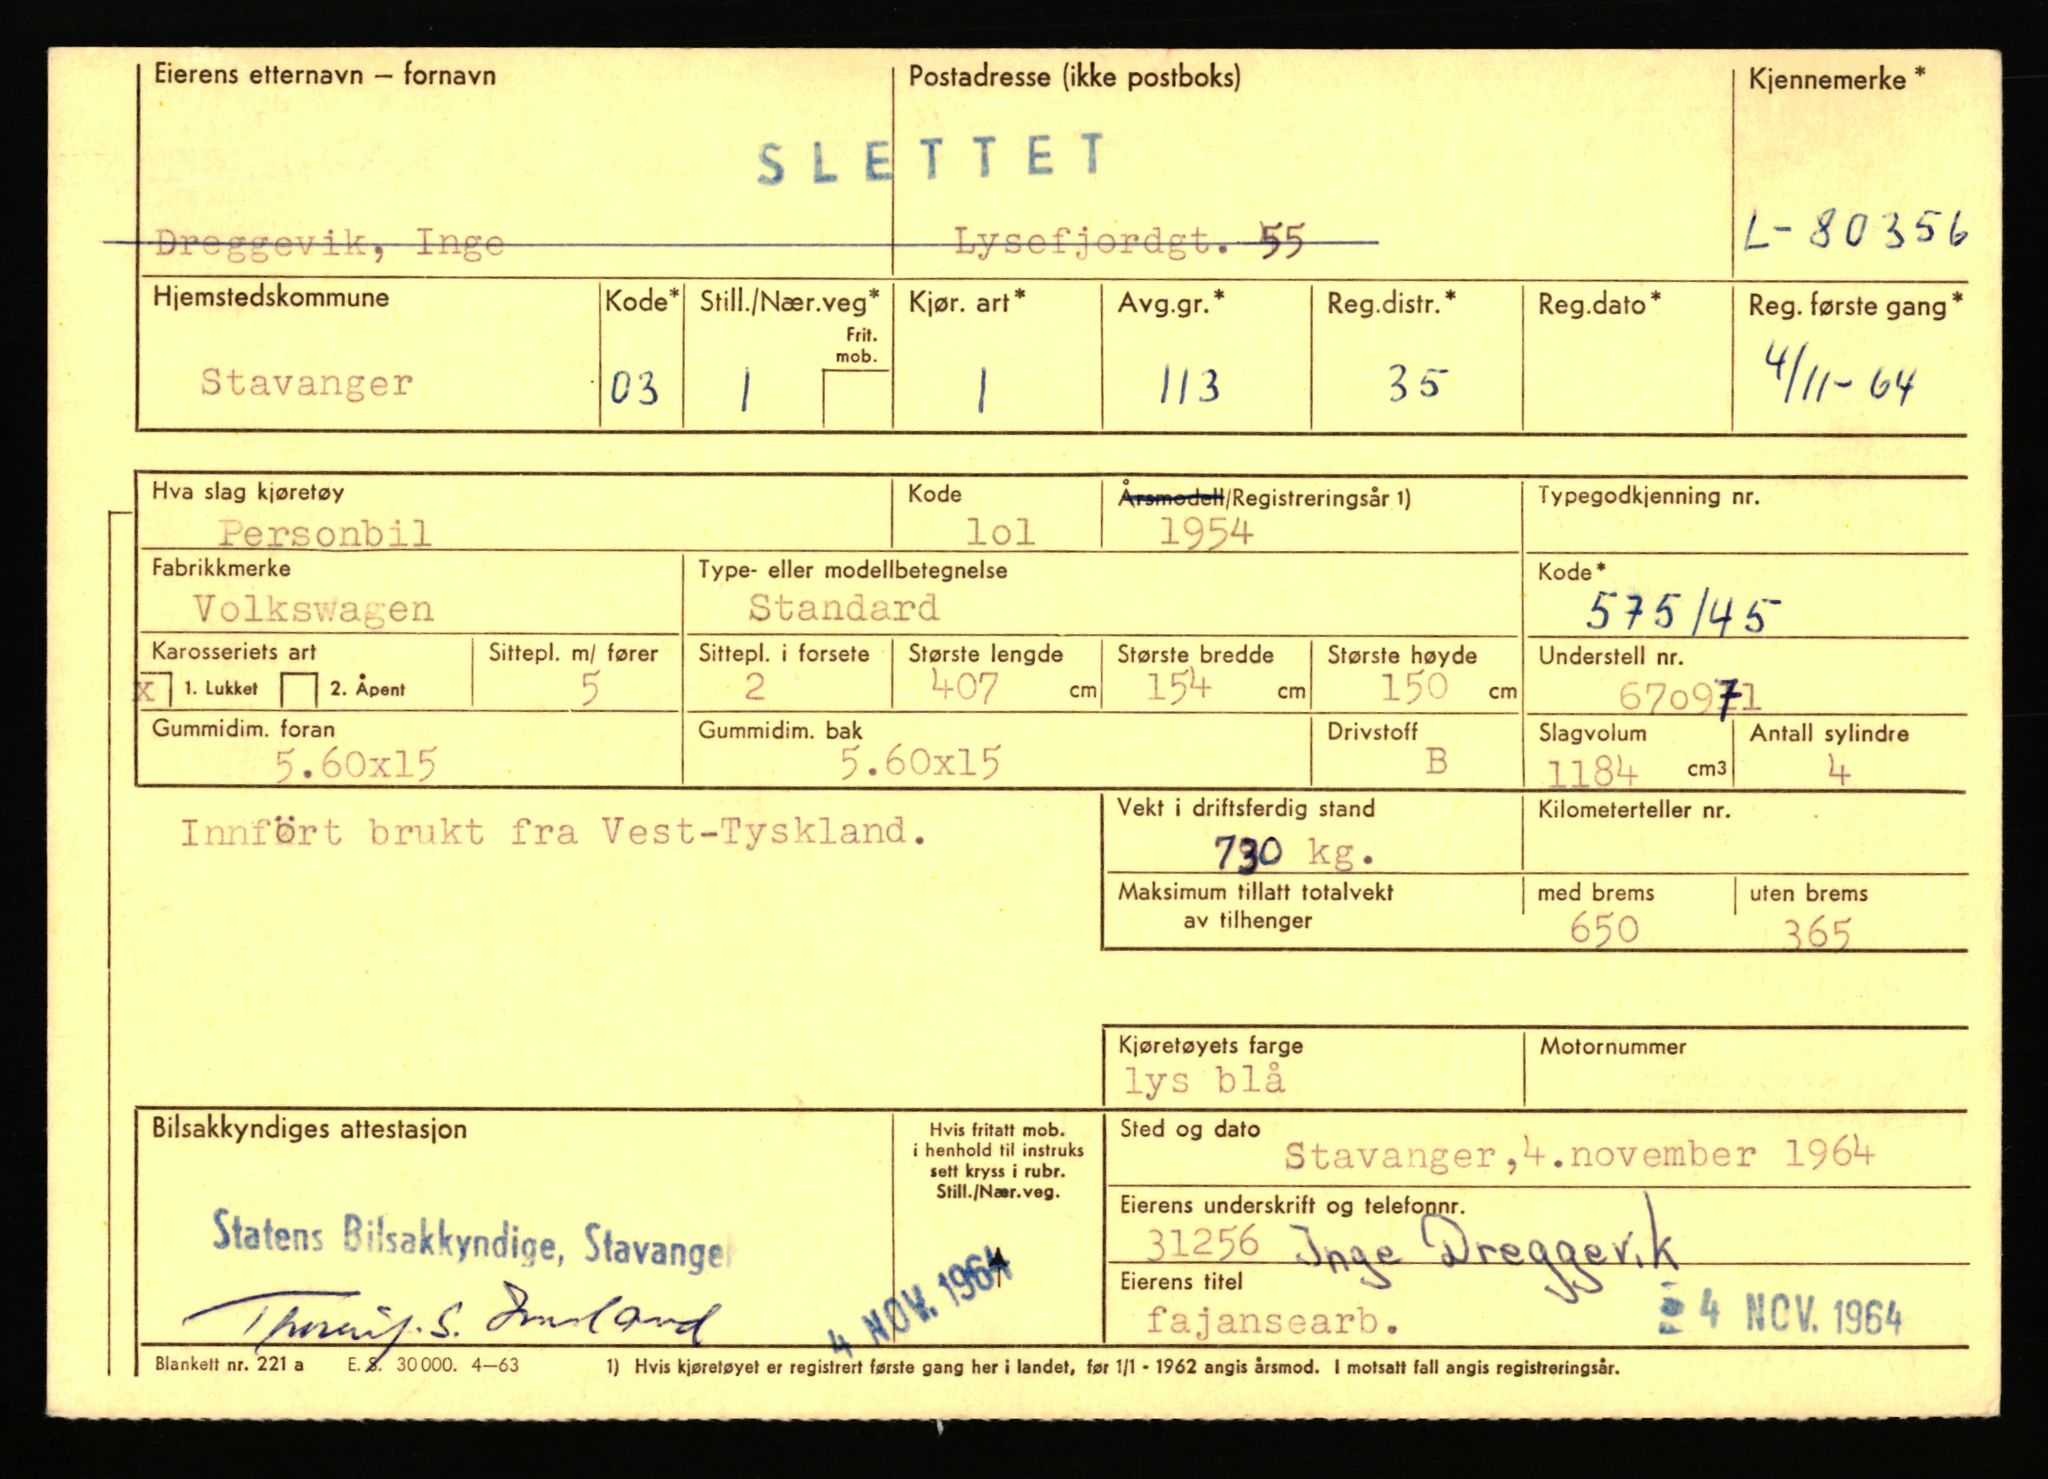 Eierens etternavn – fornavn
Postadresse (ikke postboks)
Kjennemerke*
SLETTET
Dreggevik, Inge
Lysefjordgt. 55
L-80356
Hjemstedskommune
Kode*
Still./Nær.veg*
Frit.
mob.
Kjør. art*
Avg.gr.*
Reg.distr.*
Reg.dato*
Reg. første gang*
Stavanger
03
1
1
113
35
4/11-64
Hva slag kjøretøy
Kode
Årsmodell/Registreringsår 1)
Typegodkjenning nr.
Personbil
lol
1954
Fabrikkmerke
Type- eller modellbetegnelse
Kode*
Volkswagen
Standard
575/45
Karosseriets art
Sittepl. m/ fører
Sittepl. i forsete
Største lengde
Største bredde
Største høyde
Understell nr.
x 1. Lukket 2. Åpent
5
2
407 cm
154 cm
150 cm
670971
Gummidim. foran
Gummidim. bak
Drivstoff
Slagvolum
Antall sylindre
5.60x15
5.60x15
B
1184 cm3
4
Innfört brukt fra Vest-Tyskland.
Vekt i driftsferdig stand
Kilometerteller nr.
730 kg.
Maksimum tillatt totalvekt
av tilhenger
med brems
uten brems
650
365
Kjøretøyets farge
Motornummer
lys blå
Bilsakkyndiges attestasjon
Hvis fritatt mob.
i henhold til instruks
sett kryss i rubr.
Still./Nær.veg.
Sted og dato
Stavanger,4.november 1964
Eierens underskrift og telefonnr.
31256 Inge Dreggevik
Statens Bilsakkyndige, Stavanger
4 NOV. 1964
Eierens titel
fajansearb.
4 NOV. 1964
Blankett nr. 221 a E. S. 30 000. 4–63
1) Hvis kjøretøyet er registrert første gang her i landet, før 1/1 - 1962 angis årsmod. I motsatt fall angis registreringsår.